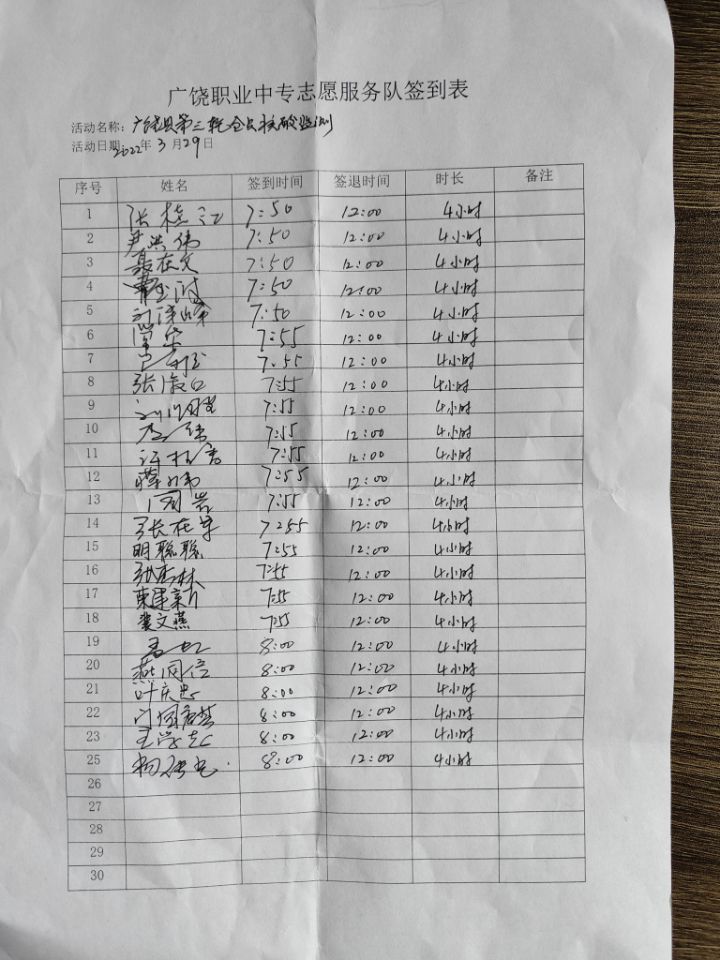 广饶职业中专志愿服务队签到表
活动名称：广饶县第三轮全员核酸监测
活动日期2022年3月29日
序号 姓名 签到时间 签退时间 时长 备注
1 张桂江 7:50 12:00 4小时
2 尹洪伟 7:50 12:00 4小时
3 聂在文 7:50 12:00 4小时
4 7:50 12:00 4小时
5 7:50 12:00 4小时
6 7:55 12:00 4小时
7 7:55 12:00 4小时
8 7:55 12:00 4小时
9 7:55 12:00 4小时
10 7:55 12:00 4小时
11 7:55 12:00 4小时
12 7:55 12:00 4小时
13 7:55 12:00 4小时
14 张在军 7:55 12:00 4小时
15 明聪聪 7:55 12:00 4小时
16 7:55 12:00 4小时
17 7:55 12:00 4小时
18 裴文燕 7:55 12:00 4小时
19 孟虹 8:00 12:00 4小时
20 燕同信 8:00 12:00 4小时
21 叶庆忠 8:00 12:00 4小时
22 8:00 12:00 4小时
23 王学志 8:00 12:00 4小时
25 8:00 12:00 4小时
26
27
28
29
30